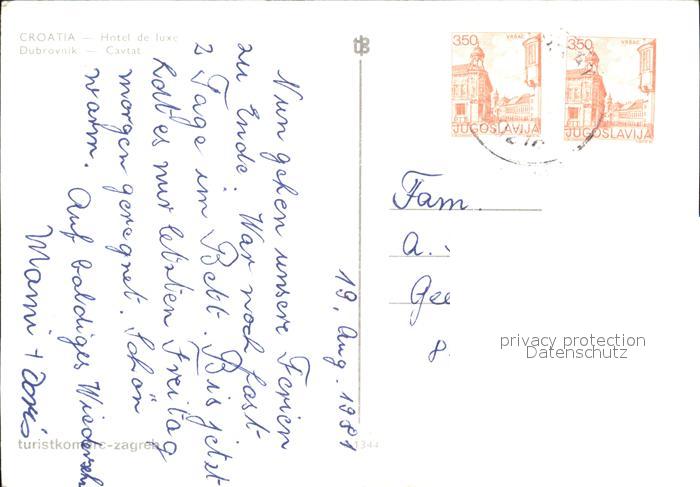 CROATIA — Hotel de luxe
Dubrovnik — Cavtat
19. Aug. 1981
Nun gehen unsere Ferien
zu Ende. War noch fast
2 Tage im Bett. Bis jetzt
hat es nur letzten Freitag
morgen geregnet. Schön
warm. Auf baldiges Wiederseh
Mami + Doris
turistkomerc-zagreb
1344
350 VRŠAC
JUGOSLAVIJA
350 VRŠAC
JUGOSLAVIJA
Fam.
A.
Gee
8.
privacy protection
Datenschutz